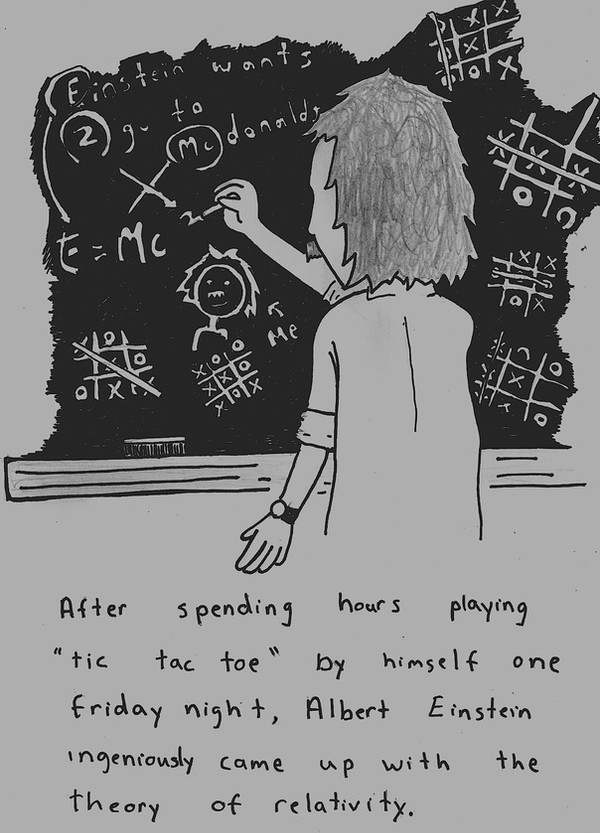 Einstein wants
2 go to
Mcdonalds
E = Mc2
Me
After spending hours playing
"tic tac toe" by himself one
friday night, Albert Einstein
ingeniously came up with the
theory of relativity.